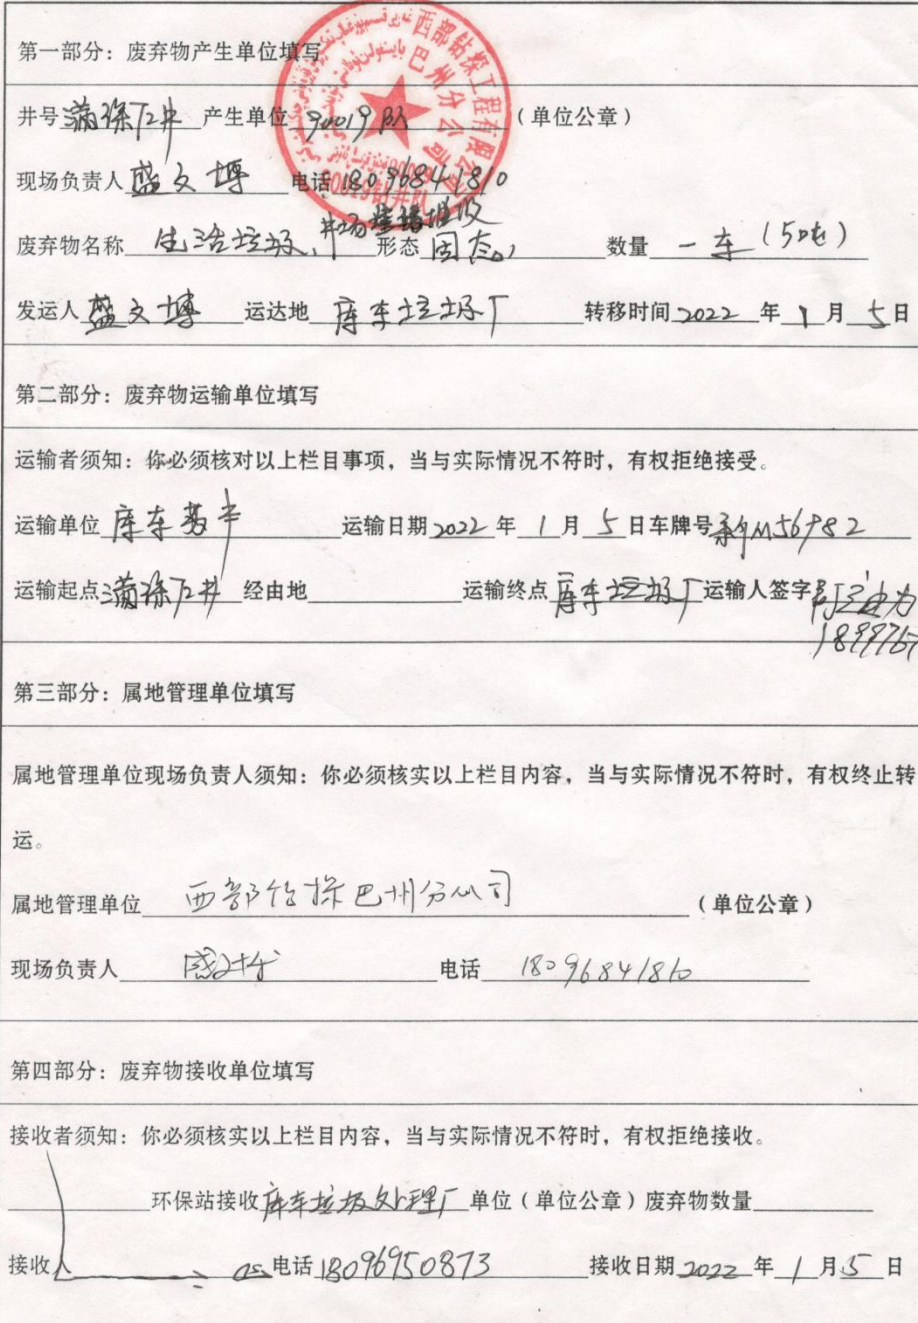 第一部分：废弃物产生单位填写
西部钻探工程有限公司
巴州分公司
90019钻井队
井号 满深72井 产生单位 90019队 （单位公章）
现场负责人 盛文博 电话 18096841810
井场垃圾
废弃物名称 生活垃圾、 形态 固态 数量 一车（5吨）
发运人 盛文博 运达地 库车垃圾厂 转移时间 2022 年 1 月 5 日
第二部分：废弃物运输单位填写
运输者须知：你必须核对以上栏目事项，当与实际情况不符时，有权拒绝接受。
运输单位 库车 运输日期 2022 年 1 月 5 日车牌号 新M56982
运输起点 满深72井 经由地 运输终点 库车垃圾厂 运输人签字
189976
第三部分：属地管理单位填写
属地管理单位现场负责人须知：你必须核实以上栏目内容，当与实际情况不符时，有权终止转
运。
属地管理单位 西部钻探巴州分公司 （单位公章）
现场负责人 盛文博 电话 18096841810
第四部分：废弃物接收单位填写
接收者须知：你必须核实以上栏目内容，当与实际情况不符时，有权拒绝接收。
环保站接收 库车垃圾处理厂 单位（单位公章）废弃物数量
接收人 电话 18096950873 接收日期 2022 年 1 月 5 日